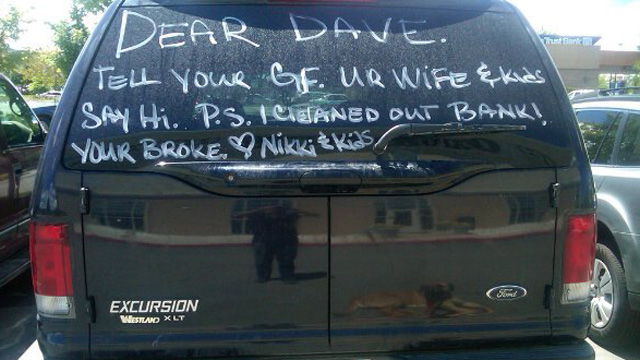 DEAR DAVE.
TELL YOUR GF. UR WIFE & KIDS
SAY HI. P.S. I CLEANED OUT BANK!
YOUR BROKE. ♡ NIKKI & KIDS
Trust Bank
EXCURSION
WESTLAND XLT
Ford